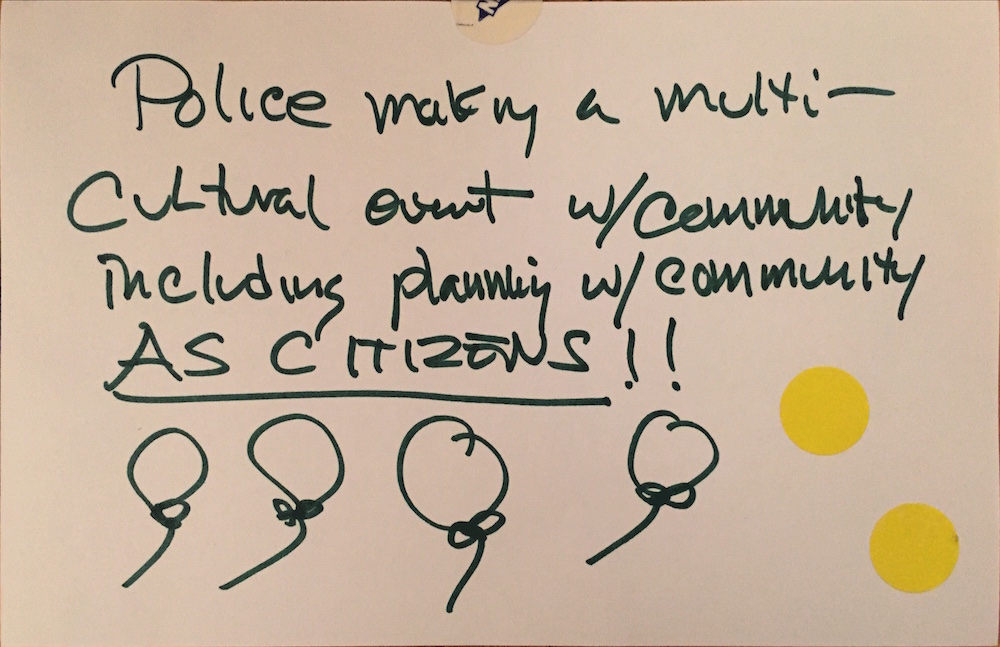 Police making a multi-
Cultural event w/community
including planning w/community
AS CITIZENS!!